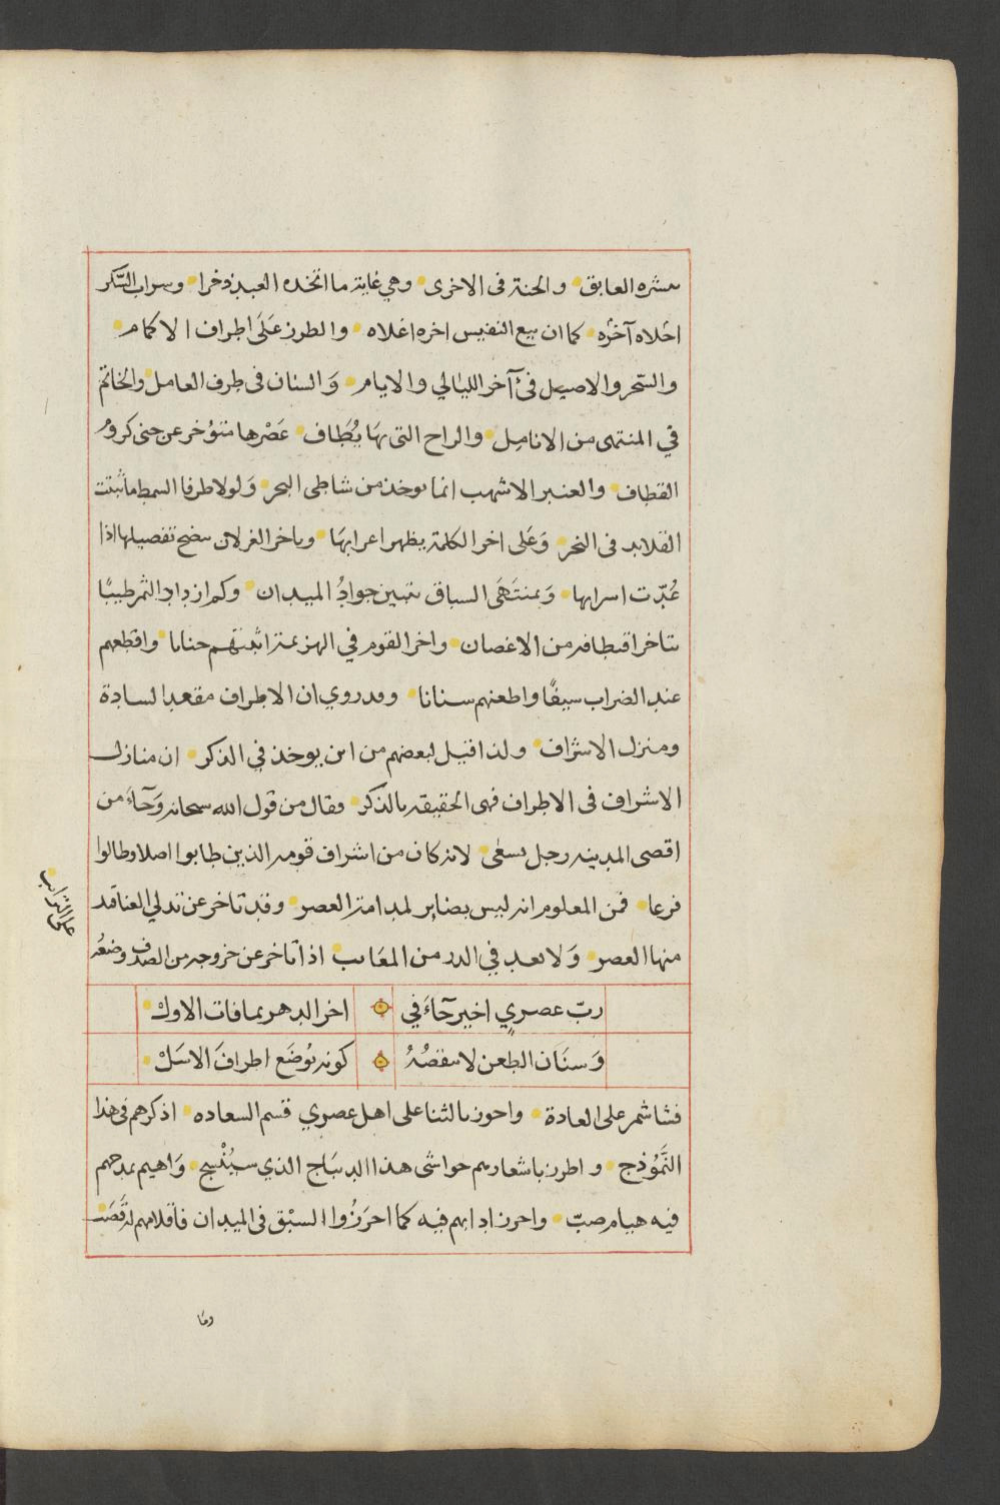 سشره العابق والجنة فى الاخرى وهي غاية ما اتخذه العبد ذخرا وسواب السّكر
احْلاه آخرُه كما ان بيع النفيس اخره اغلاه والطرز عَلَى اطراف الاكمام
والسّحر والاصيل فى آخر الليالي والايام وَالسنان فى طرف العامل والخاتم
في المنتهى من الانامِل والراح التى بهَا يُطَاف عَصْرها متوُخر عن جنى كروم
القطاف والعنبر الاشهب انما يوخذ من شاطى البحر وَلولا طرفا السمط ما ثبتت
القلايد فى النحر وَعَلى اخر الكلمة يظهر اعرابهَا وباخر الغزلان يتضح تفصيلها اذا
عُدّت اسرابها وَبمنتَهَى السباق تتبين جوادُ الميدان وكم ازداد الثمر طيبًا
بتاخر اقتطافه من الاغصان واخر القوم في الهزيمة اثبتهم جنانا واقطعهم
عند الضراب سيفًا واطعنهم سنانا وقد روي ان الاطراف مقعد السادة
ومنزل الاشراف ولذا قيل لبعضهم من اين يوخذ في الذكر ان منازل
الاشراف فى الاطراف فهى الحقيقه بالذكر وقال من قول الله سبحانه وَجآء من
اقصى المدينه رجل يسعى لانه كان من اشراف قومه الذين طابوا اصلا وطالوا
فرعا فمن المعلوم انه ليس بضاير لمدامة العصر وقد تاخر عن تدلي العناقد
منها العصر وَلا يعد في الدر من المعَايب اذا تاخر عن خروجه من الصدف وضعُه
على التراب
ربّ عصري اخير جآءَ في اخر الدهر بما فات الاوك
وَسنَان الطعن لا ينقصُهُ كونه يُوضَع اطرافَ الاسَل
فشا شمر على العادة واحوز بالثنا على اهل عصري قسم السعاده اذكرهم فى هذا
النَّمُوذج واطرز باشعارهم حواشى هذا الديبَاج الذي سيُنْسج وَاهيم بمدحهم
فيه هيام صبّ واحرز ادابهم فيه كما احرَزُوا السبْق فى الميدان فاقلامهم لقَصَب
وما